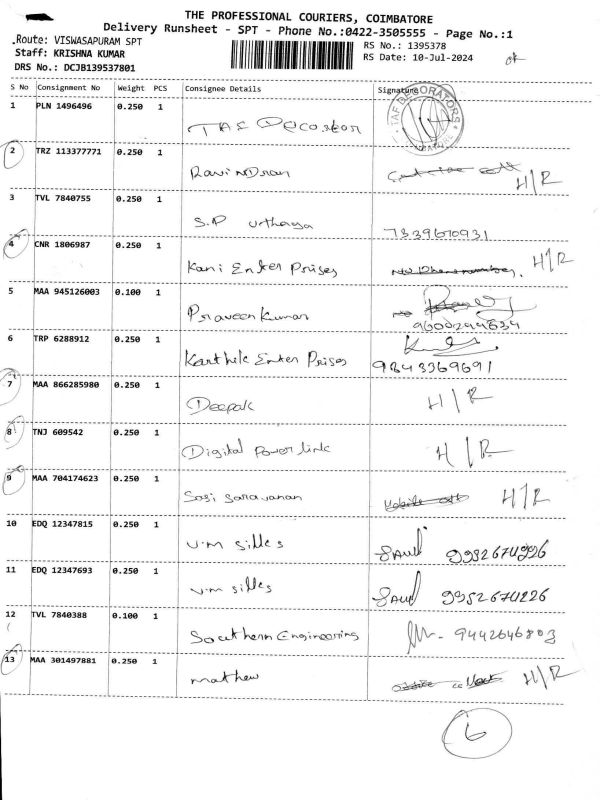 THE PROFESSIONAL COURIERS, COIMBATORE
Delivery Runsheet - SPT - Phone No.:0422-3505555 - Page No.:1
Route: VISWASAPURAM SPT
Staff: KRISHNA KUMAR
DRS No.: DCJB139537801
RS No.: 1395378
RS Date: 10-Jul-2024
S No Consignment No Weight PCS Consignee Details Signature
1 PLN 1496496 0.250 1
2 TRZ 113377771 0.250 1
RavinDran H/R
3 TVL 7840755 0.250 1
S.P 7339670931
4 CNR 1806987 0.250 1
Kani Enter Prises H/R
5 MAA 945126003 0.100 1
Praveen Kumar
6 TRP 6288912 0.250 1
Karthik Enter Prises 9843369691
7 MAA 866285980 0.250 1
Deepak H/R
8 TNJ 609542 0.250 1
Digital Power link H/R
9 MAA 704174623 0.250 1
Sasi Saravanan H/R
10 EDQ 12347815 0.250 1
V.M Silks
11 EDQ 12347693 0.250 1
V.M Silks 9952674226
12 TVL 7840388 0.100 1
Southern Engineering 9442646803
13 MAA 301497881 0.250 1
mathew H/R
6